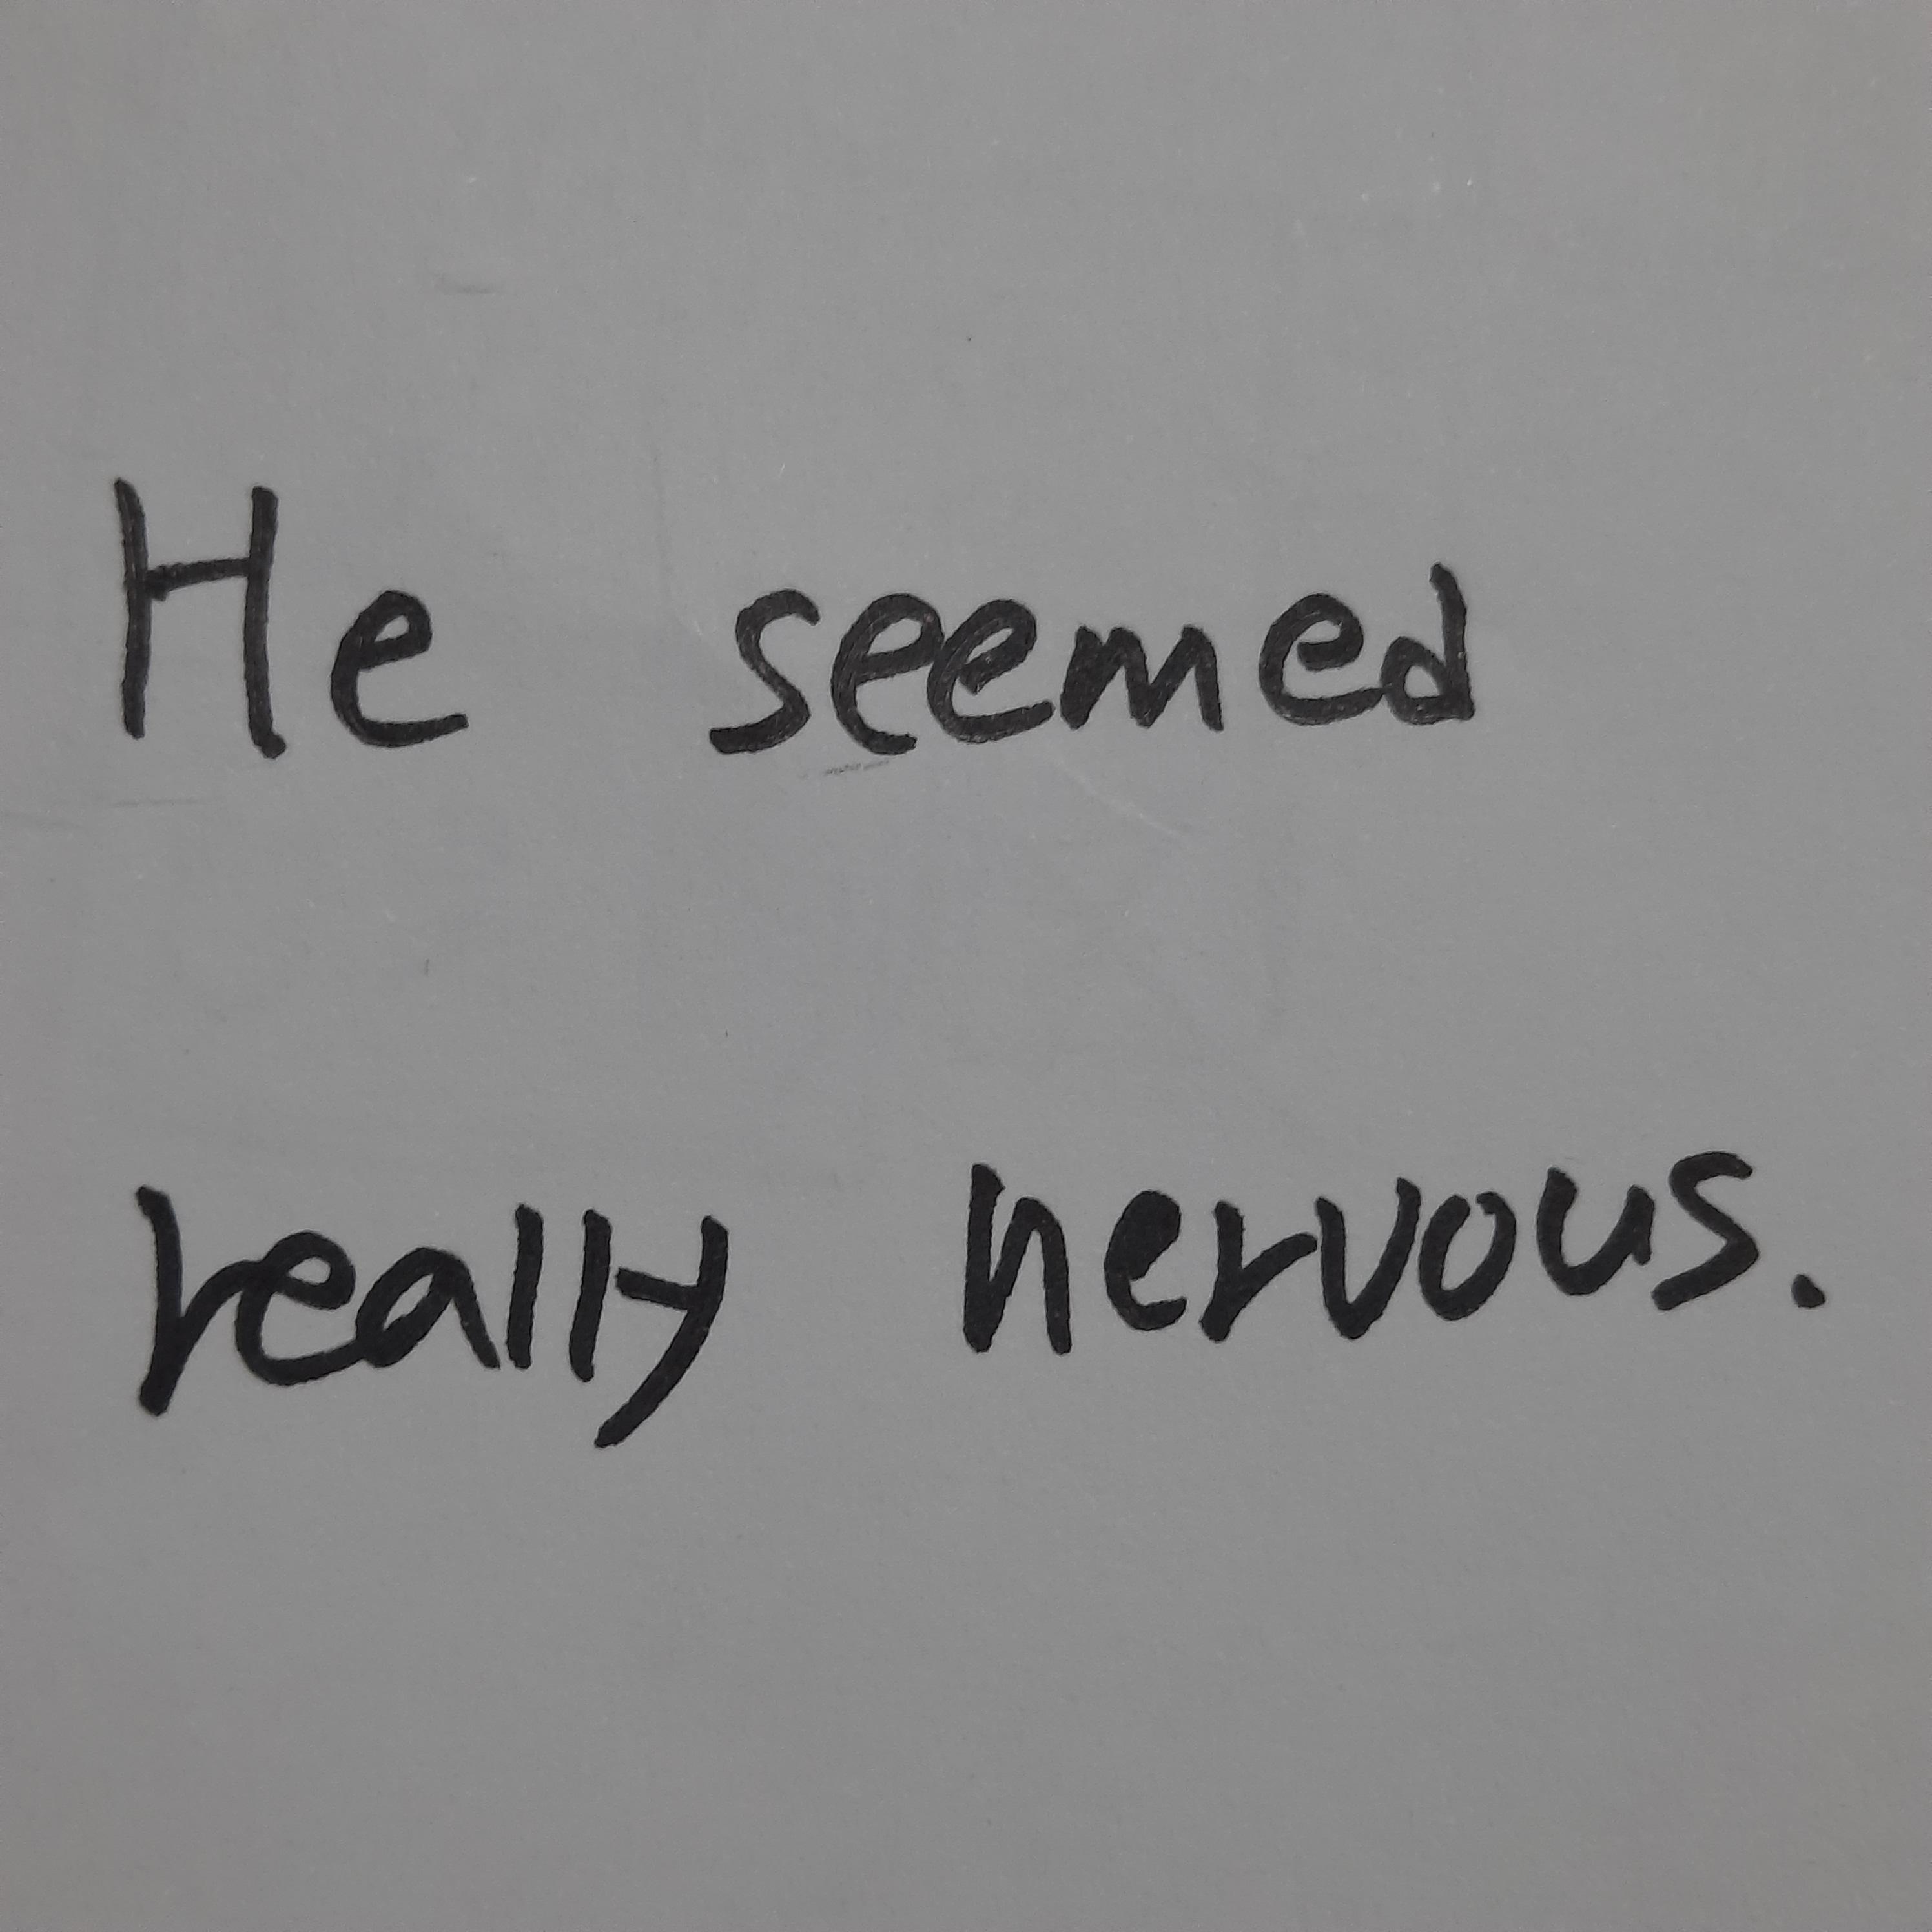 He seemed
really nervous.